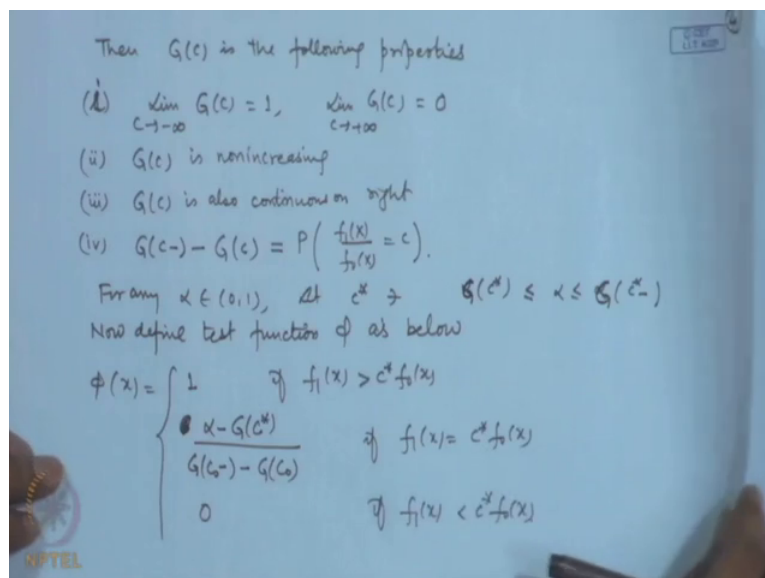 Then G(c) is the following properties
(i) Lim G(c) = 1, Lim G(c) = 0
c→-∞ c→+∞
(ii) G(c) is nonincreasing
(iii) G(c) is also continuous on right
(iv) G(c-) - G(c) = P( f₁(X) / f₀(X) = c ).
For any α ∈ (0,1), let c* ∋ G(c*) ≤ α ≤ G(c*-)
Now define test function φ as below
φ(x) = { 1 if f₁(x) > c* f₀(x)
α - G(c*) / G(c₀-) - G(c₀) if f₁(x) = c* f₀(x)
0 if f₁(x) < c* f₀(x)
NPTEL